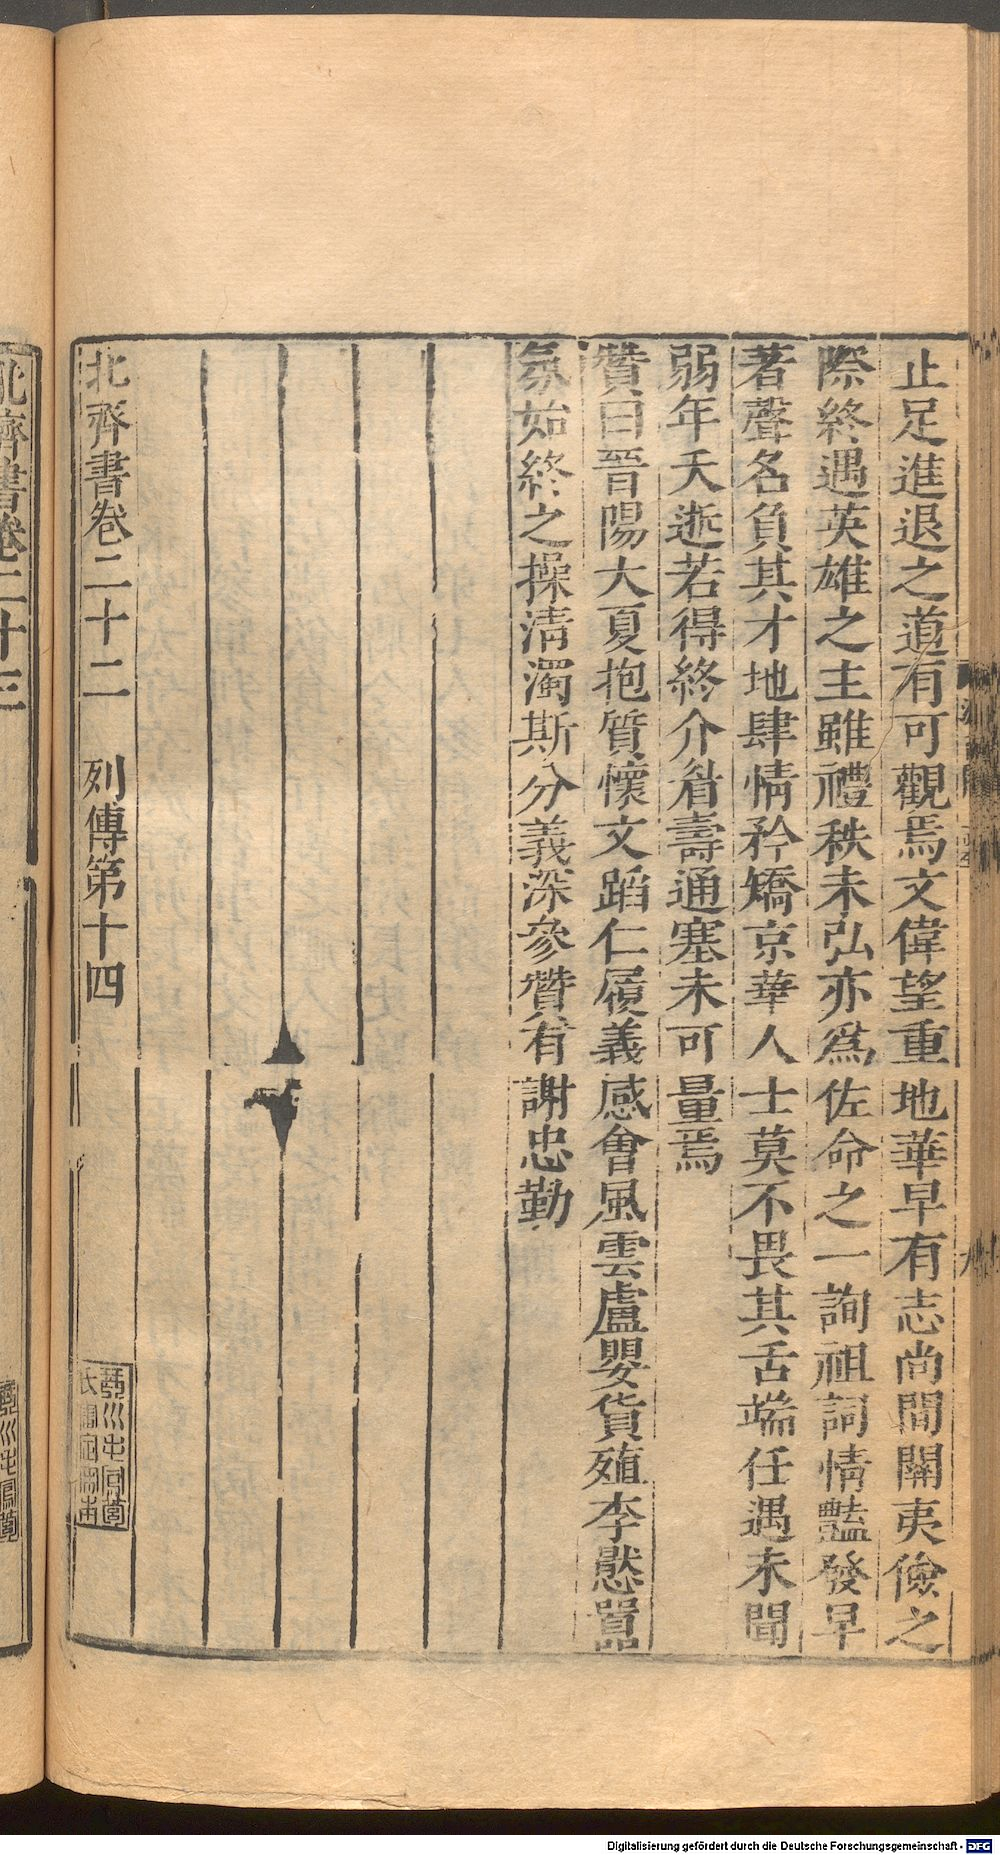 止足進退之道有可觀焉文偉望重地華早有志尚間關夷儉之
際終遇英雄之主雖禮秩未弘亦爲佐命之一詢祖詞情豔發早
著聲名負其才地肆情矜矯京華人士莫不畏其舌端任遇未聞
弱年夭逝若得終介眉壽通塞未可量焉
贊曰晉陽大夏抱質懷文蹈仁履義感會風雲盧嬰貨殖李愍囂
氛始終之操清濁斯分義深參贊有謝忠勤
北齊書卷二十二 列傳第十四
北齊書卷二十三
Digitalisierung gefördert durch die Deutsche Forschungsgemeinschaft - DFG